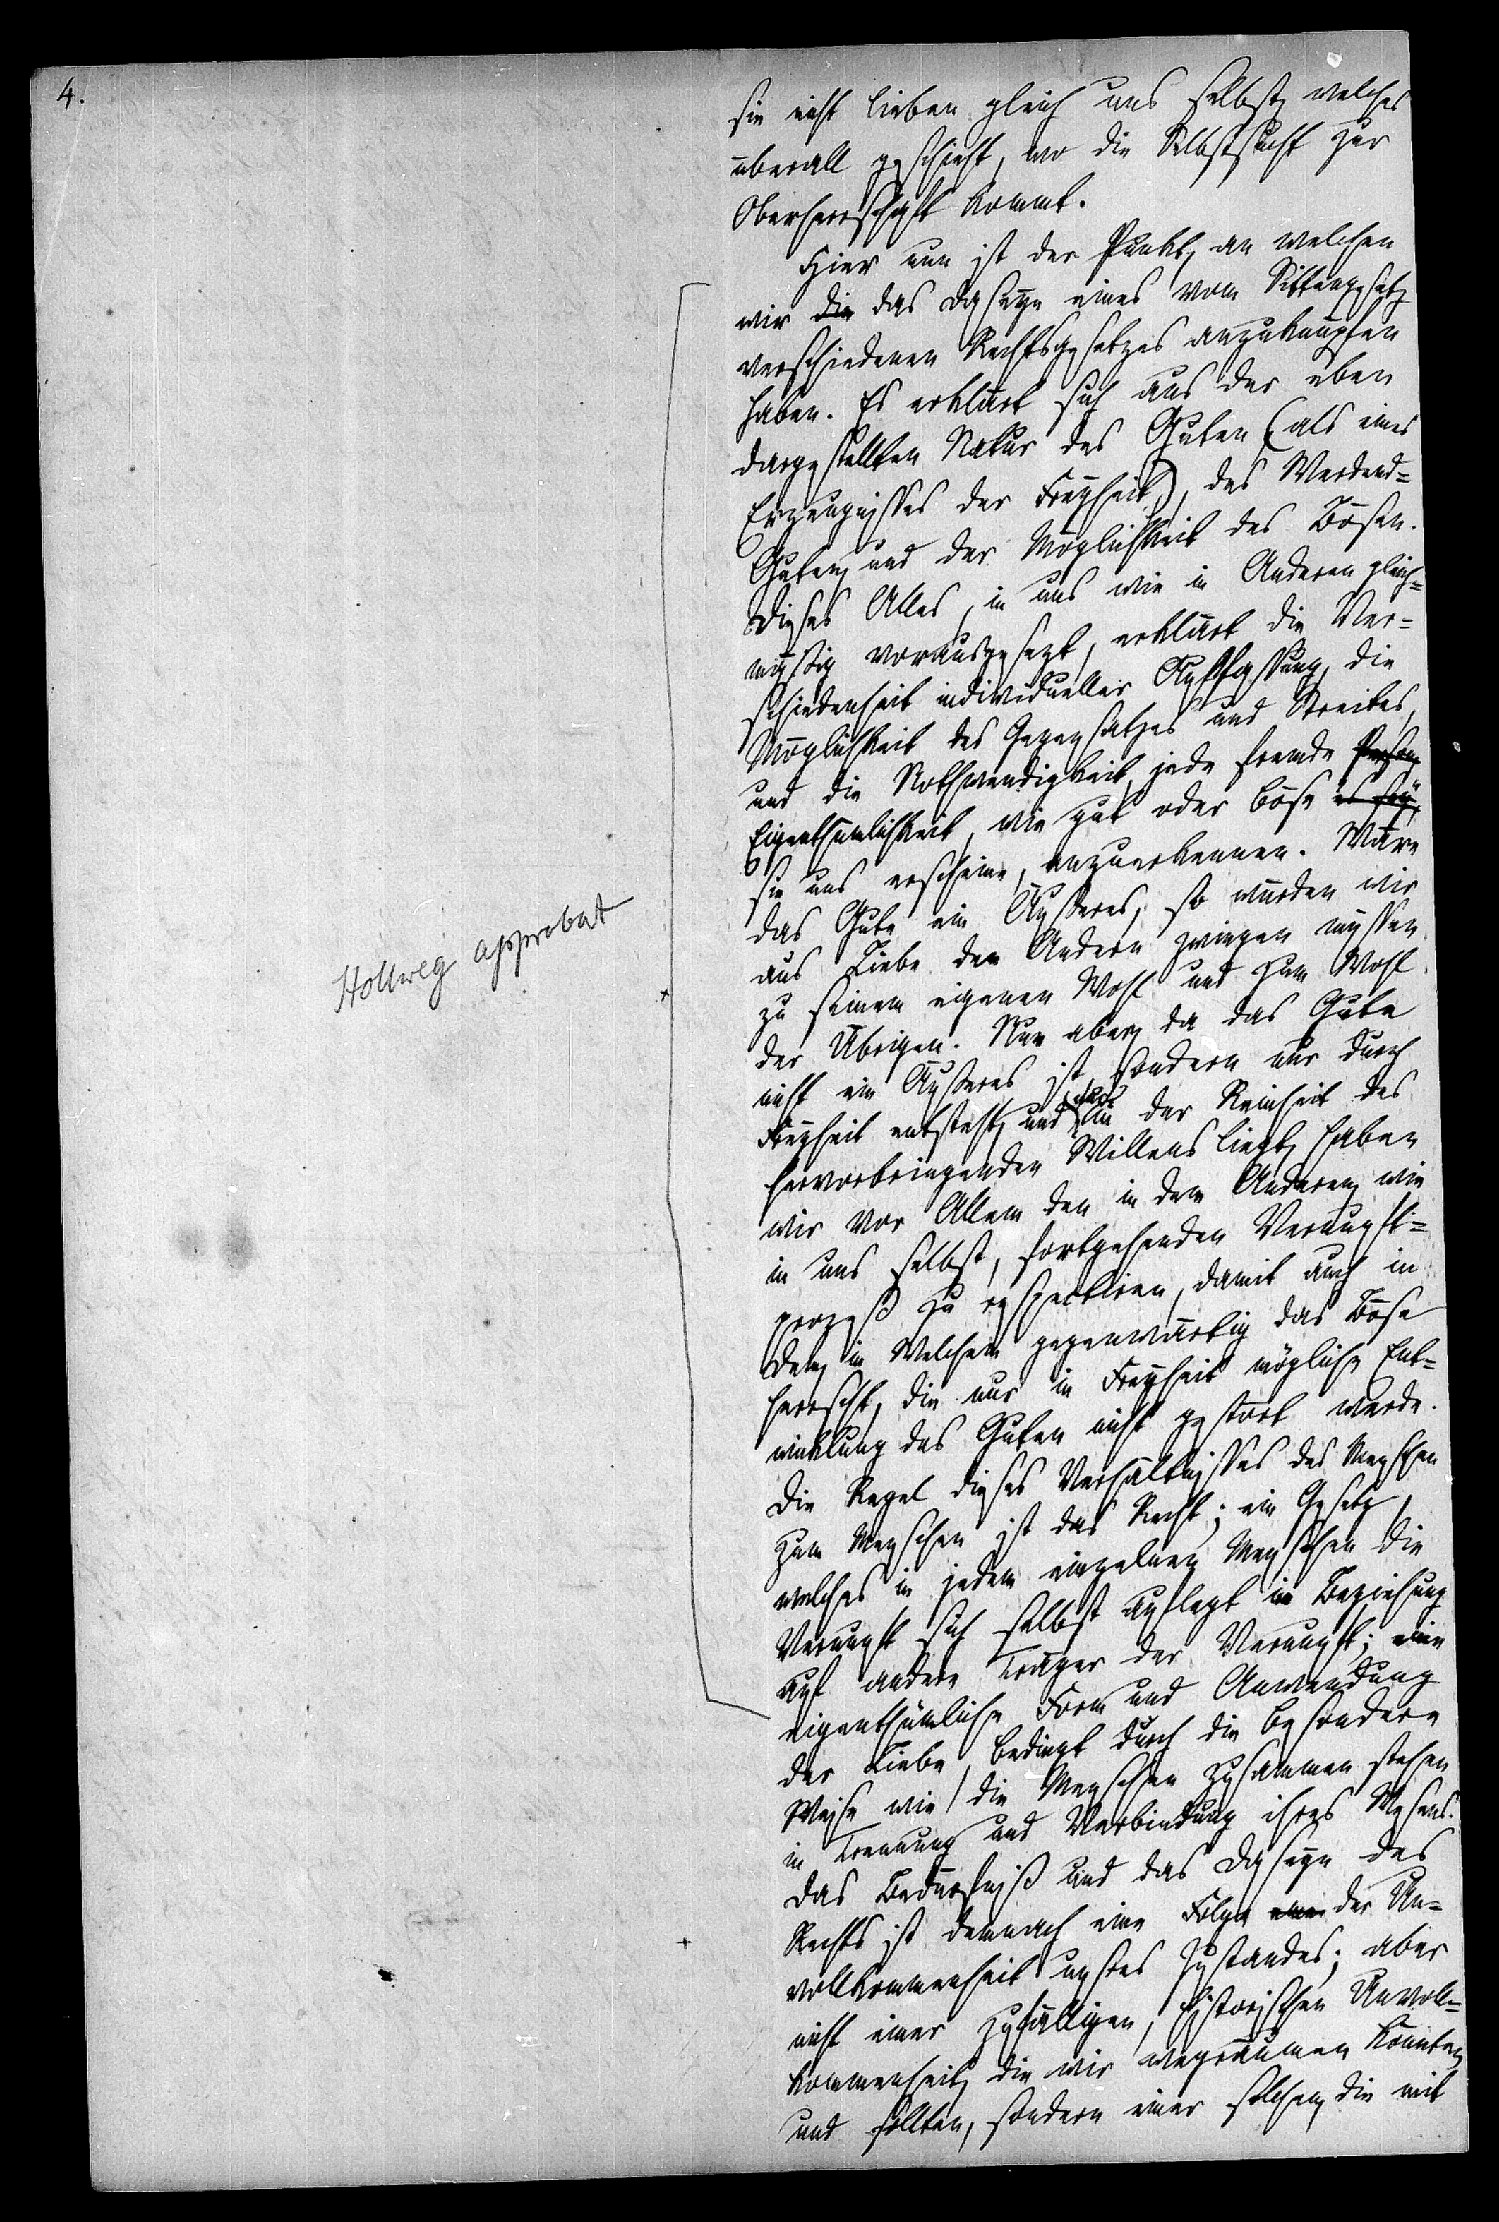 4.
sie nicht lieben gleich uns selbst, welches
überall geschieht, wo die Selbstsucht zur
Oberherrschaft kommt.
Hier nun ist der Punkt, an welchen
wir die das Daseyn eines vom Sittengesetz
verschiedenen Rechtsgesetzes anzuknüpfen
haben. Es erklärt sich aus der eben
dargestellten Natur des Guten (als eines
Erzeugnisses der Freyheit), des Werdend=
Guten, und der Möglichkeit des Bösen.
Dieses Alles, in uns wie in Anderen gleich=
mäßig vorausgesezt, erklärt die Ver=
schiedenheit individueller Auffassung, die
Möglichkeit des Gegensatzes und Streites,
und die Nothwendigkeit, jede fremde Person
Eigenthümlichkeit, wie gut oder böse es sey,
sie uns erscheine, anzuerkennen. Wäre
das Gute ein Äußeres, so würden wir
aus Liebe den Andern zwingen müssen
zu seinem eigenen Wohl und zum Wohl
der Übrigen. Nun aber, da das Gute
nicht ein Äußeres ist, sondern nur durch
Freyheit entsteht, und nur in der Reinheit des
hervorbringenden Willens liegt, haben
wir vor Allem den in dem Anderen, wie
in uns selbst, fortgehenden Vernunft=
prozeß zu respectiren, damit auch in
dem, in Welchem gegenwärtig das Böse
herrscht, die nur in Freyheit mögliche Ent=
wicklung des Guten nicht gestört werde.
Die Regel dieses Verhältnisses des Menschen
zum Menschen ist das Recht; ein Gesetz,
welches in jedem einzelnen Menschen die
Vernunft sich selbst auflegt in Beziehung
auf andere Träger der Vernunft; eine
eigenthümliche Form und Anwendung
der Liebe, bedingt durch die besondere
Weise wie die Menschen zusammen stehen
in Trennung und Verbindung ihres Wesens.
Das Bedürfniß und das Daseyn des
Rechts ist demnach eine Folge einer der Un=
vollkommenheit unsres Zustandes; aber
nicht einer zufälligen, historischen Unvoll=
kommenheit, die wir wegräumen könnten
und sollten, sondern einer solchen, die mit
Hollweg approbat